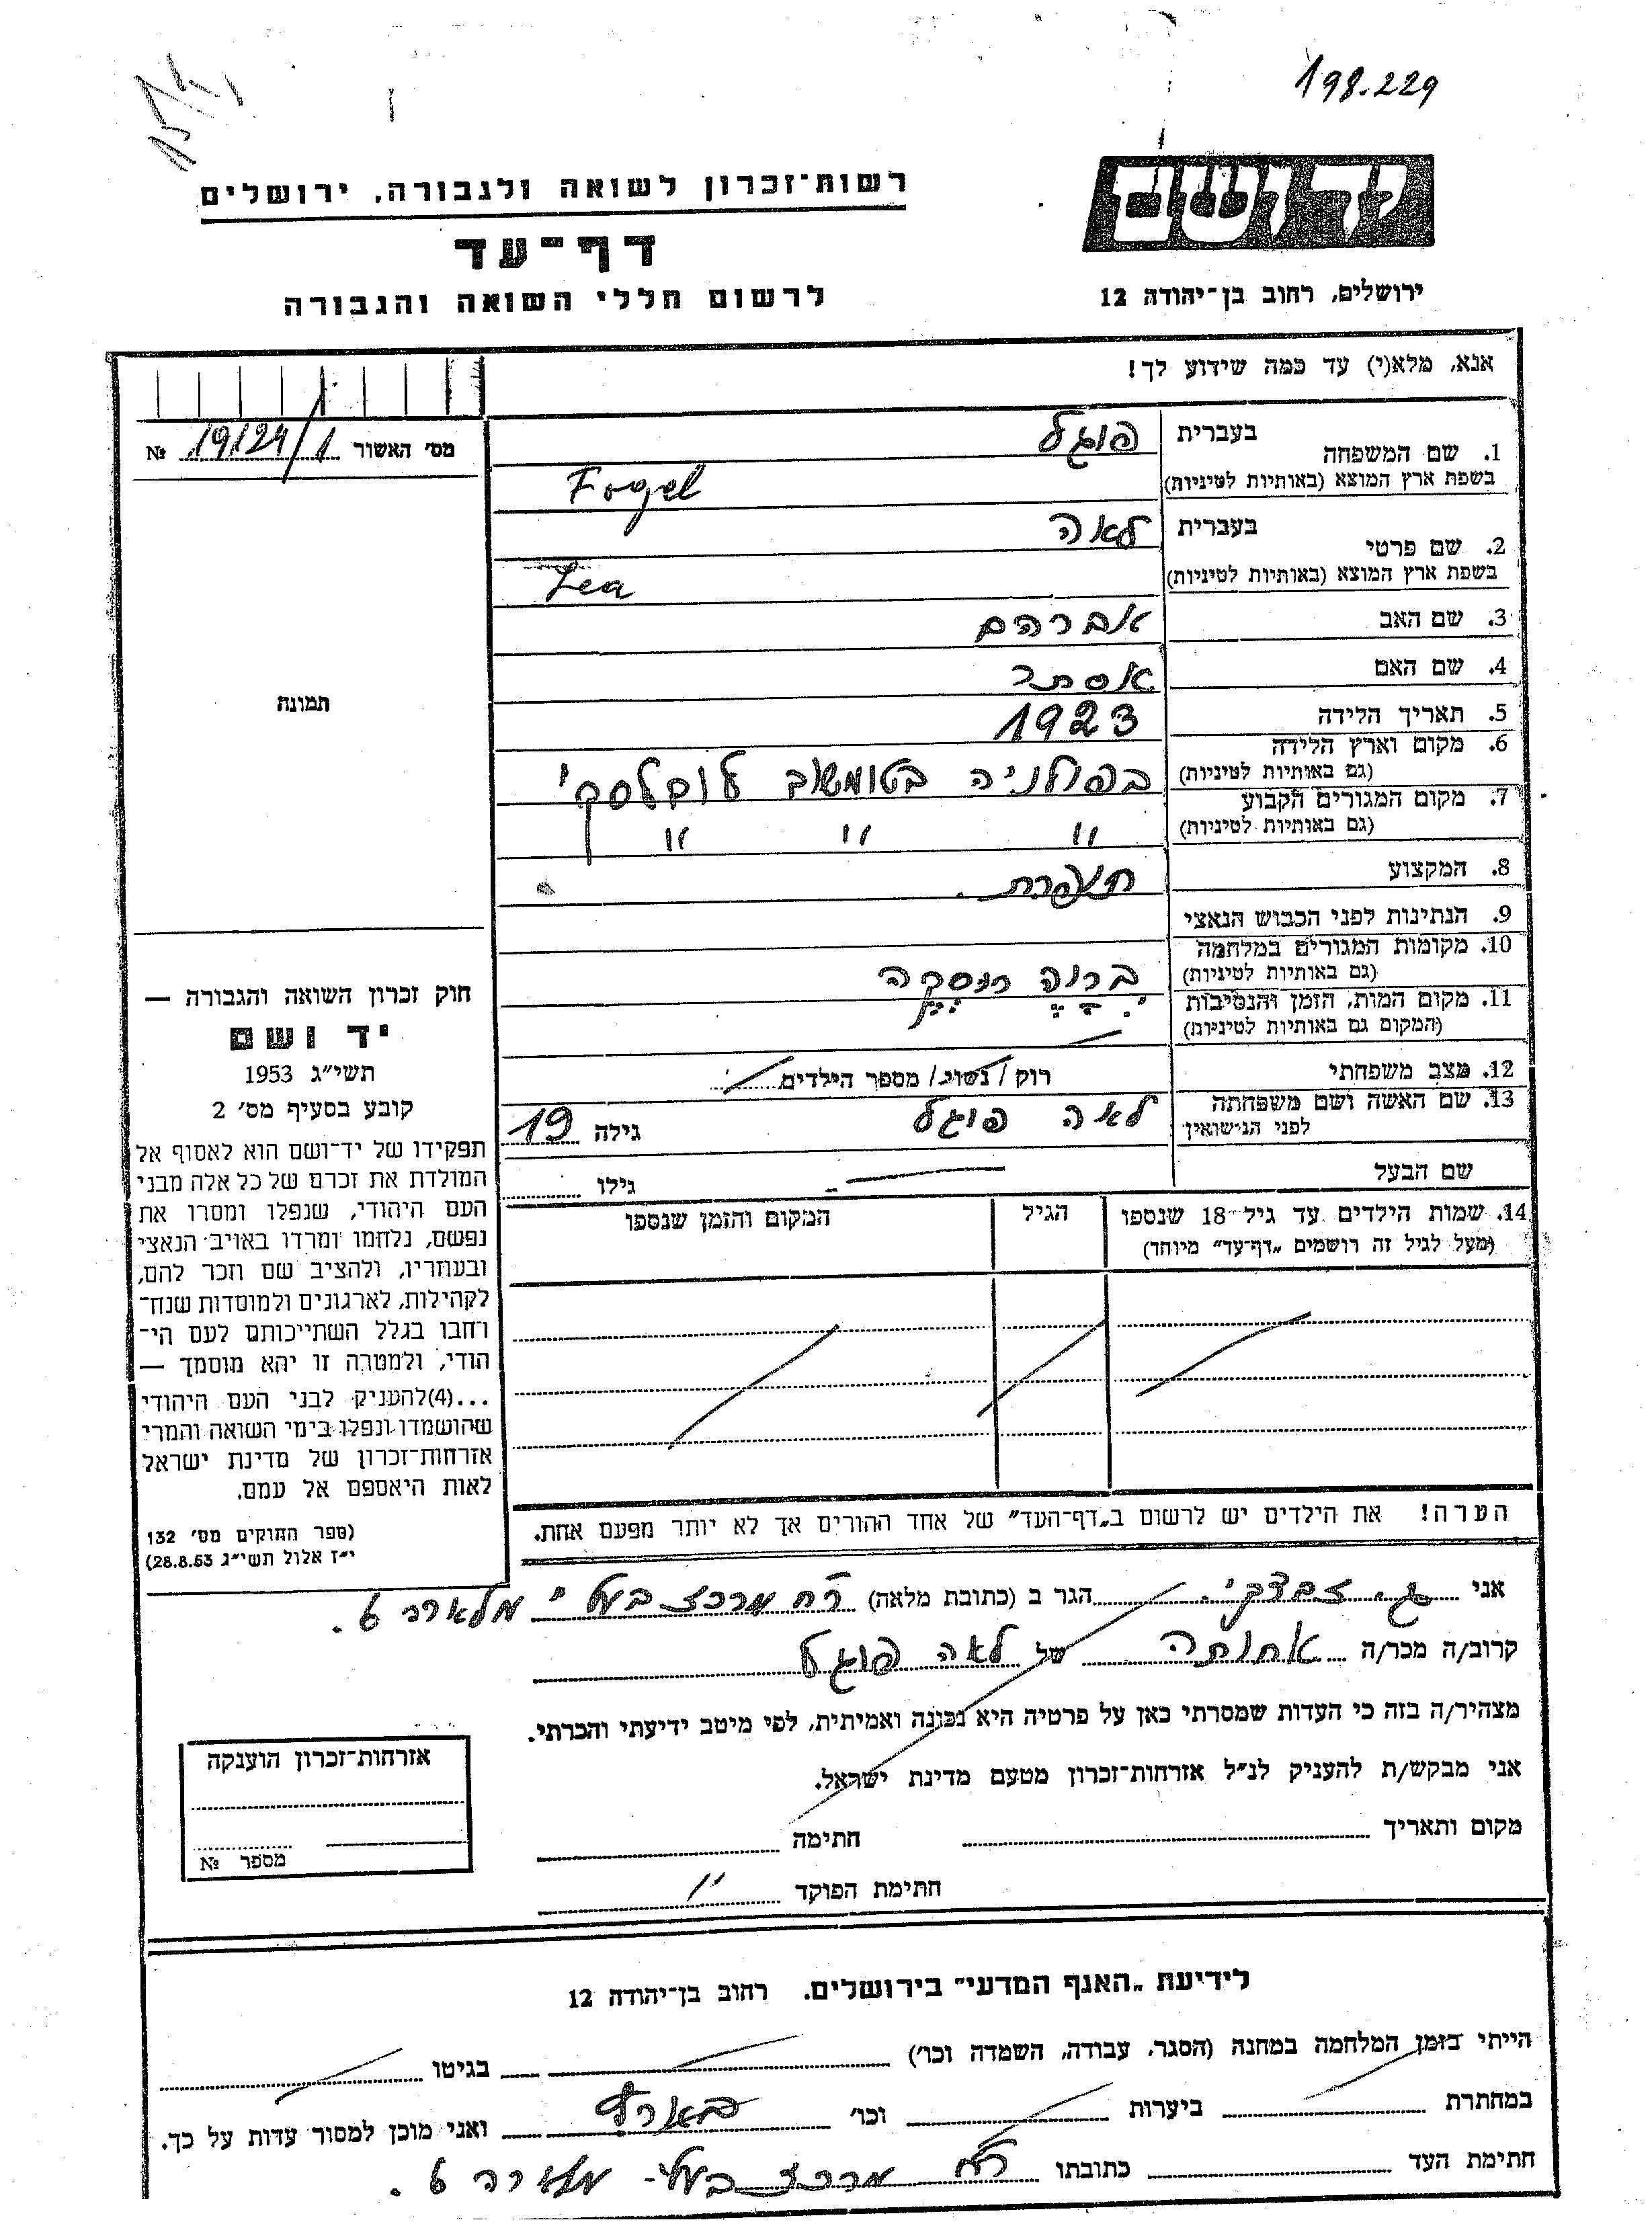 198.229
יד ושם
ירושלים, רחוב בן־יהודה 12
רשות־זכרון לשואה ולגבורה, ירושלים
דף־עד
לרשום חללי השואה והגבורה
אנא, מלא(י) עד כמה שידוע לך!
מס׳ האשור 19124/1 №
1. שם המשפחה בעברית פוגל
בשפת ארץ המוצא (באותיות לטיניות) Fogel
2. שם פרטי בעברית לאה
בשפת ארץ המוצא (באותיות לטיניות) Lea
3. שם האב אברהם
4. שם האם אסתר
5. תאריך הלידה 1923
6. מקום וארץ הלידה בפולניה בטומשוב לובלסקי
(גם באותיות לטיניות)
7. מקום המגורים הקבוע " " "
(גם באותיות לטיניות)
8. המקצוע תופרת.
9. הנתינות לפני הכבוש הנאצי
10. מקומות המגורים במלחמה
(גם באותיות לטיניות)
11. מקום המות, הזמן והנסיבות
(המקום גם באותיות לטיניות)
12. מצב משפחתי רוק / נשוי / מספר הילדים
13. שם האשה ושם משפחתה לאה פוגל גילה 19
לפני הנישואין
שם הבעל גילו
14. שמות הילדים עד גיל 18 שנספו הגיל המקום והזמן שנספו
(מעל לגיל זה רושמים „דף־עד״ מיוחד)
הערה! את הילדים יש לרשום ב„דף־העד״ של אחד ההורים אך לא יותר מפעם אחת.
תמונה
חוק זכרון השואה והגבורה —
יד ושם
תשי״ג 1953
קובע בסעיף מס׳ 2
תפקידו של יד־ושם הוא לאסוף אל
המולדת את זכרם של כל אלה מבני
העם היהודי, שנפלו ומסרו את
נפשם, נלחמו ומרדו באויב הנאצי
ובעוזריו, ולהציב שם וזכר להם,
לקהילות, לארגונים ולמוסדות שנח־
רחבו בגלל השתייכותם לעם הי־
הודי, ולמטרה זו יהא מוסמך —
...(4)להעניק לבני העם היהודי
שהושמדו ונפלו בימי השואה והמרי
אזרחות־זכרון של מדינת ישראל
לאות היאספם אל עמם.
(ספר החוקים מס׳ 132
י״ז אלול תשי״ג 28.8.53)
אני הגר ב (כתובת מלאה) רח מרכז בעלי מלאכה 6.
קרוב/ה מכר/ה אחותה של לאה פוגל
מצהיר/ה בזה כי העדות שמסרתי כאן על פרטיה היא נכונה ואמיתית, לפי מיטב ידיעתי והכרתי.
אני מבקש/ת להעניק לנ״ל אזרחות־זכרון מטעם מדינת ישראל.
מקום ותאריך חתימה
חתימת הפוקד "
אזרחות־זכרון הוענקה
מספר №
לידיעת „האגף המדעי״ בירושלים. רחוב בן־יהודה 12
הייתי בזמן המלחמה במחנה (הסגר, עבודה, השמדה וכו׳) בגיטו
במחתרת ביערות וכו׳ בארץ ואני מוכן למסור עדות על כך.
חתימת העד כתובתו רח מרכז בעלי 6.